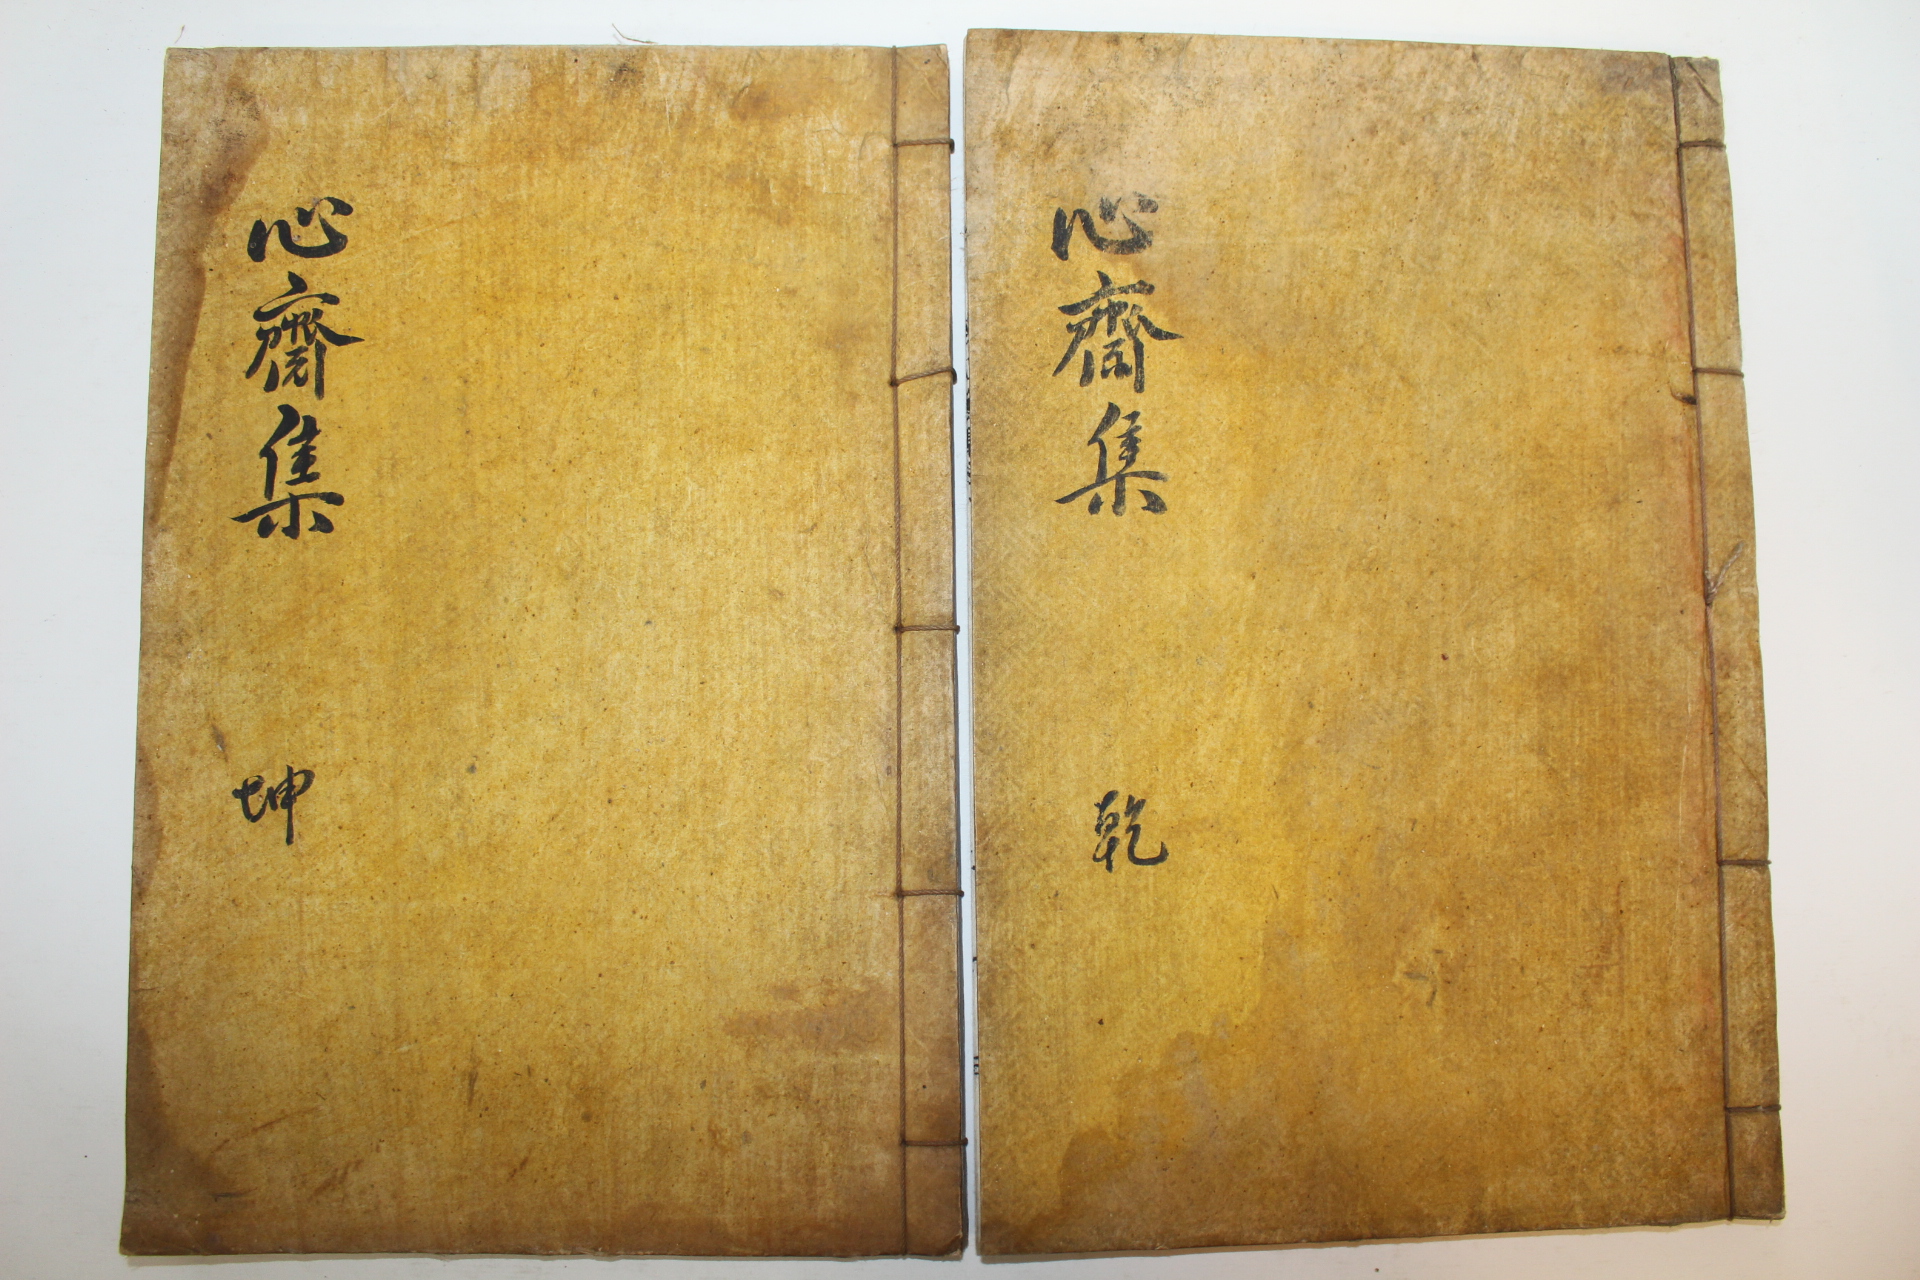 心齋集
乾
心齋集
坤